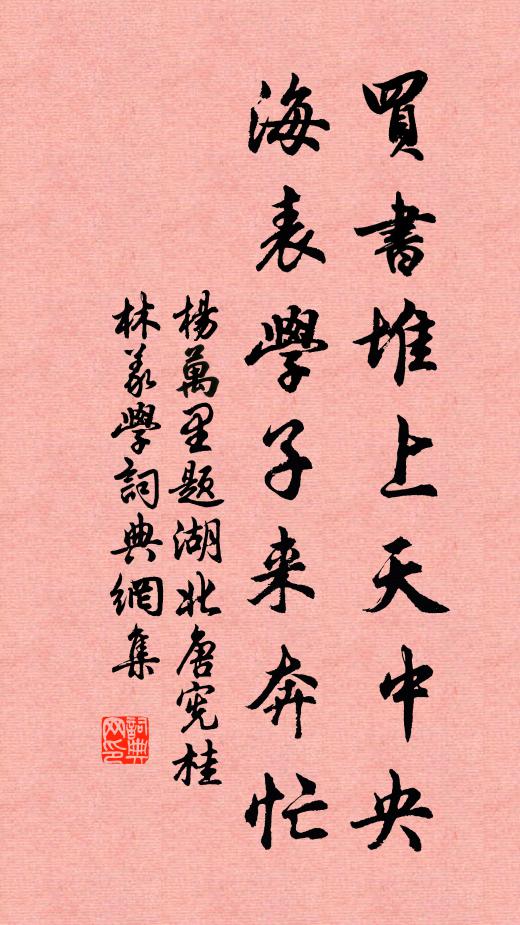 買書堆上天中央
海表學子来奔忙
楊萬里題湖北唐憲桂
林義學詞典網集
詞典網印